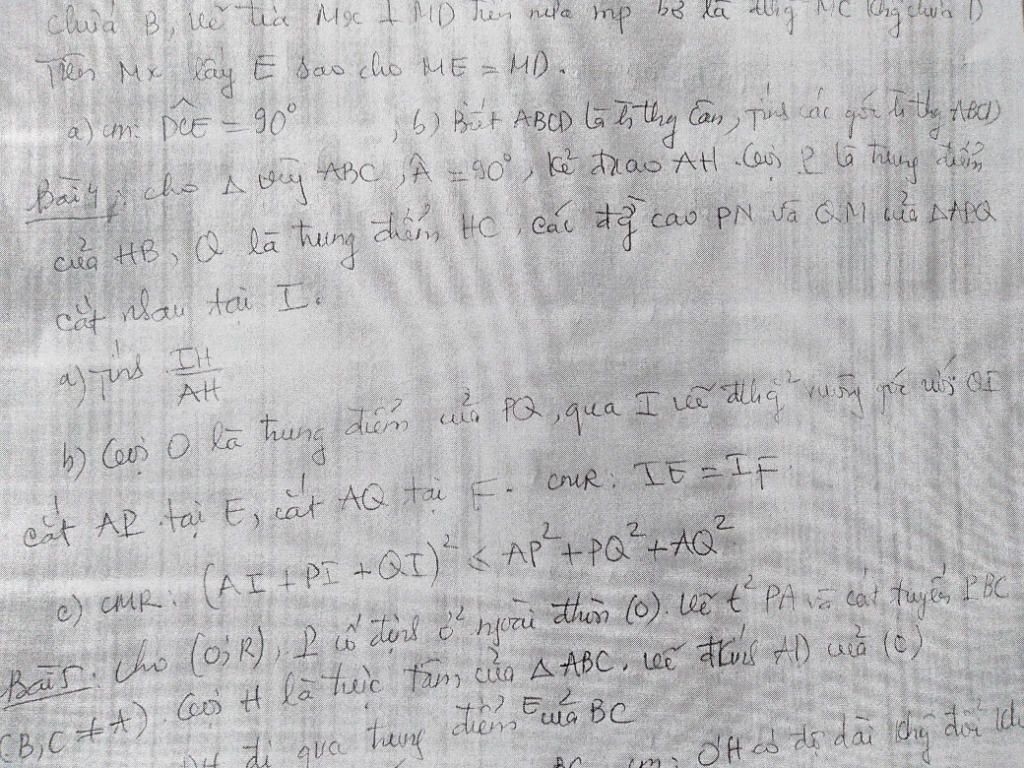 chứa B, vẽ tia Mx ⊥ MD trên nửa mp bờ là đthg MC (chứa
Trên Mx lấy E sao cho ME = MD.
a) cm: DCE = 90° , b) Biết ABCD là h thg cân, tính các góc h thg ABCD
Bài 4: cho Δ vuông ABC, Â = 90°, kẻ đg cao AH. Gọi P là trung điểm
của HB, Q là trung điểm HC, các đg cao PN và QM của ΔAPQ
cắt nhau tại I.
a) Tính IH/AH
b) Gọi O là trung điểm của PQ, qua I vẽ đthg vuông góc với OI
cắt AP tại E, cắt AQ tại F. CMR: IE = IF
c) CMR: (AI + PI + QI)² ≤ AP² + PQ² + AQ²
Bài 5: Cho (O;R), P cố định ở ngoài (O). Vẽ t² PA và cát tuyến PBC
(B,C ≠ A). Gọi H là trực tâm của ΔABC. Vẽ đkính AD của (O)
DH đi qua trung điểm E của BC
cm: OH có độ dài đổi